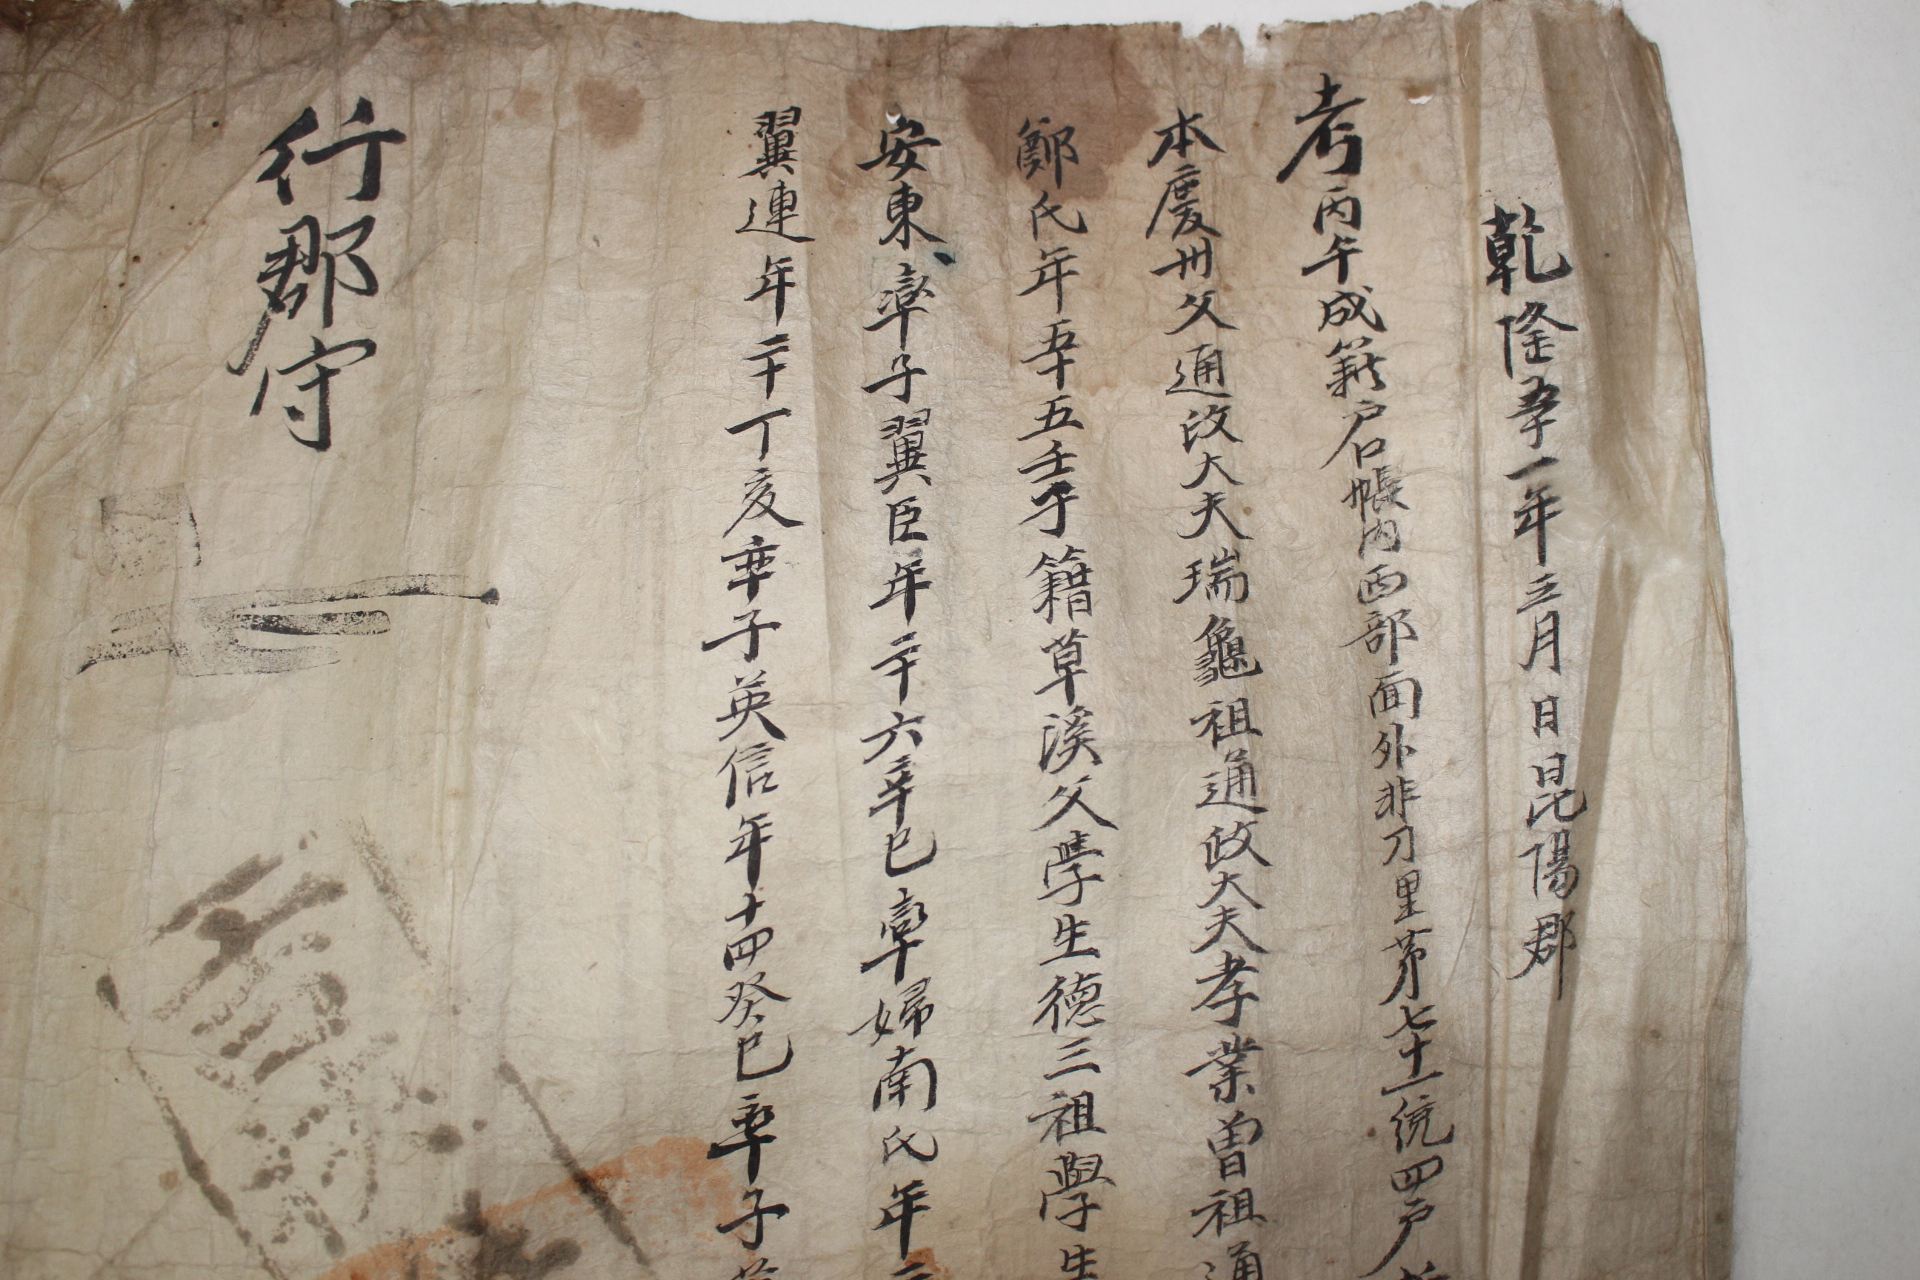 乾隆五十一年三月日昆陽郡
考丙午成籍戶口帳內西部面外非刀里苐七十一統四戶
本慶州父通政大夫瑞龜祖通政大夫孝業曽祖通
鄭氏年五十五壬子籍草溪父學生德三祖學生
安東率子翼臣年二十六辛巳率婦南氏年二
翼連年二十丁亥率子英信年十四癸巳率子英
行郡守